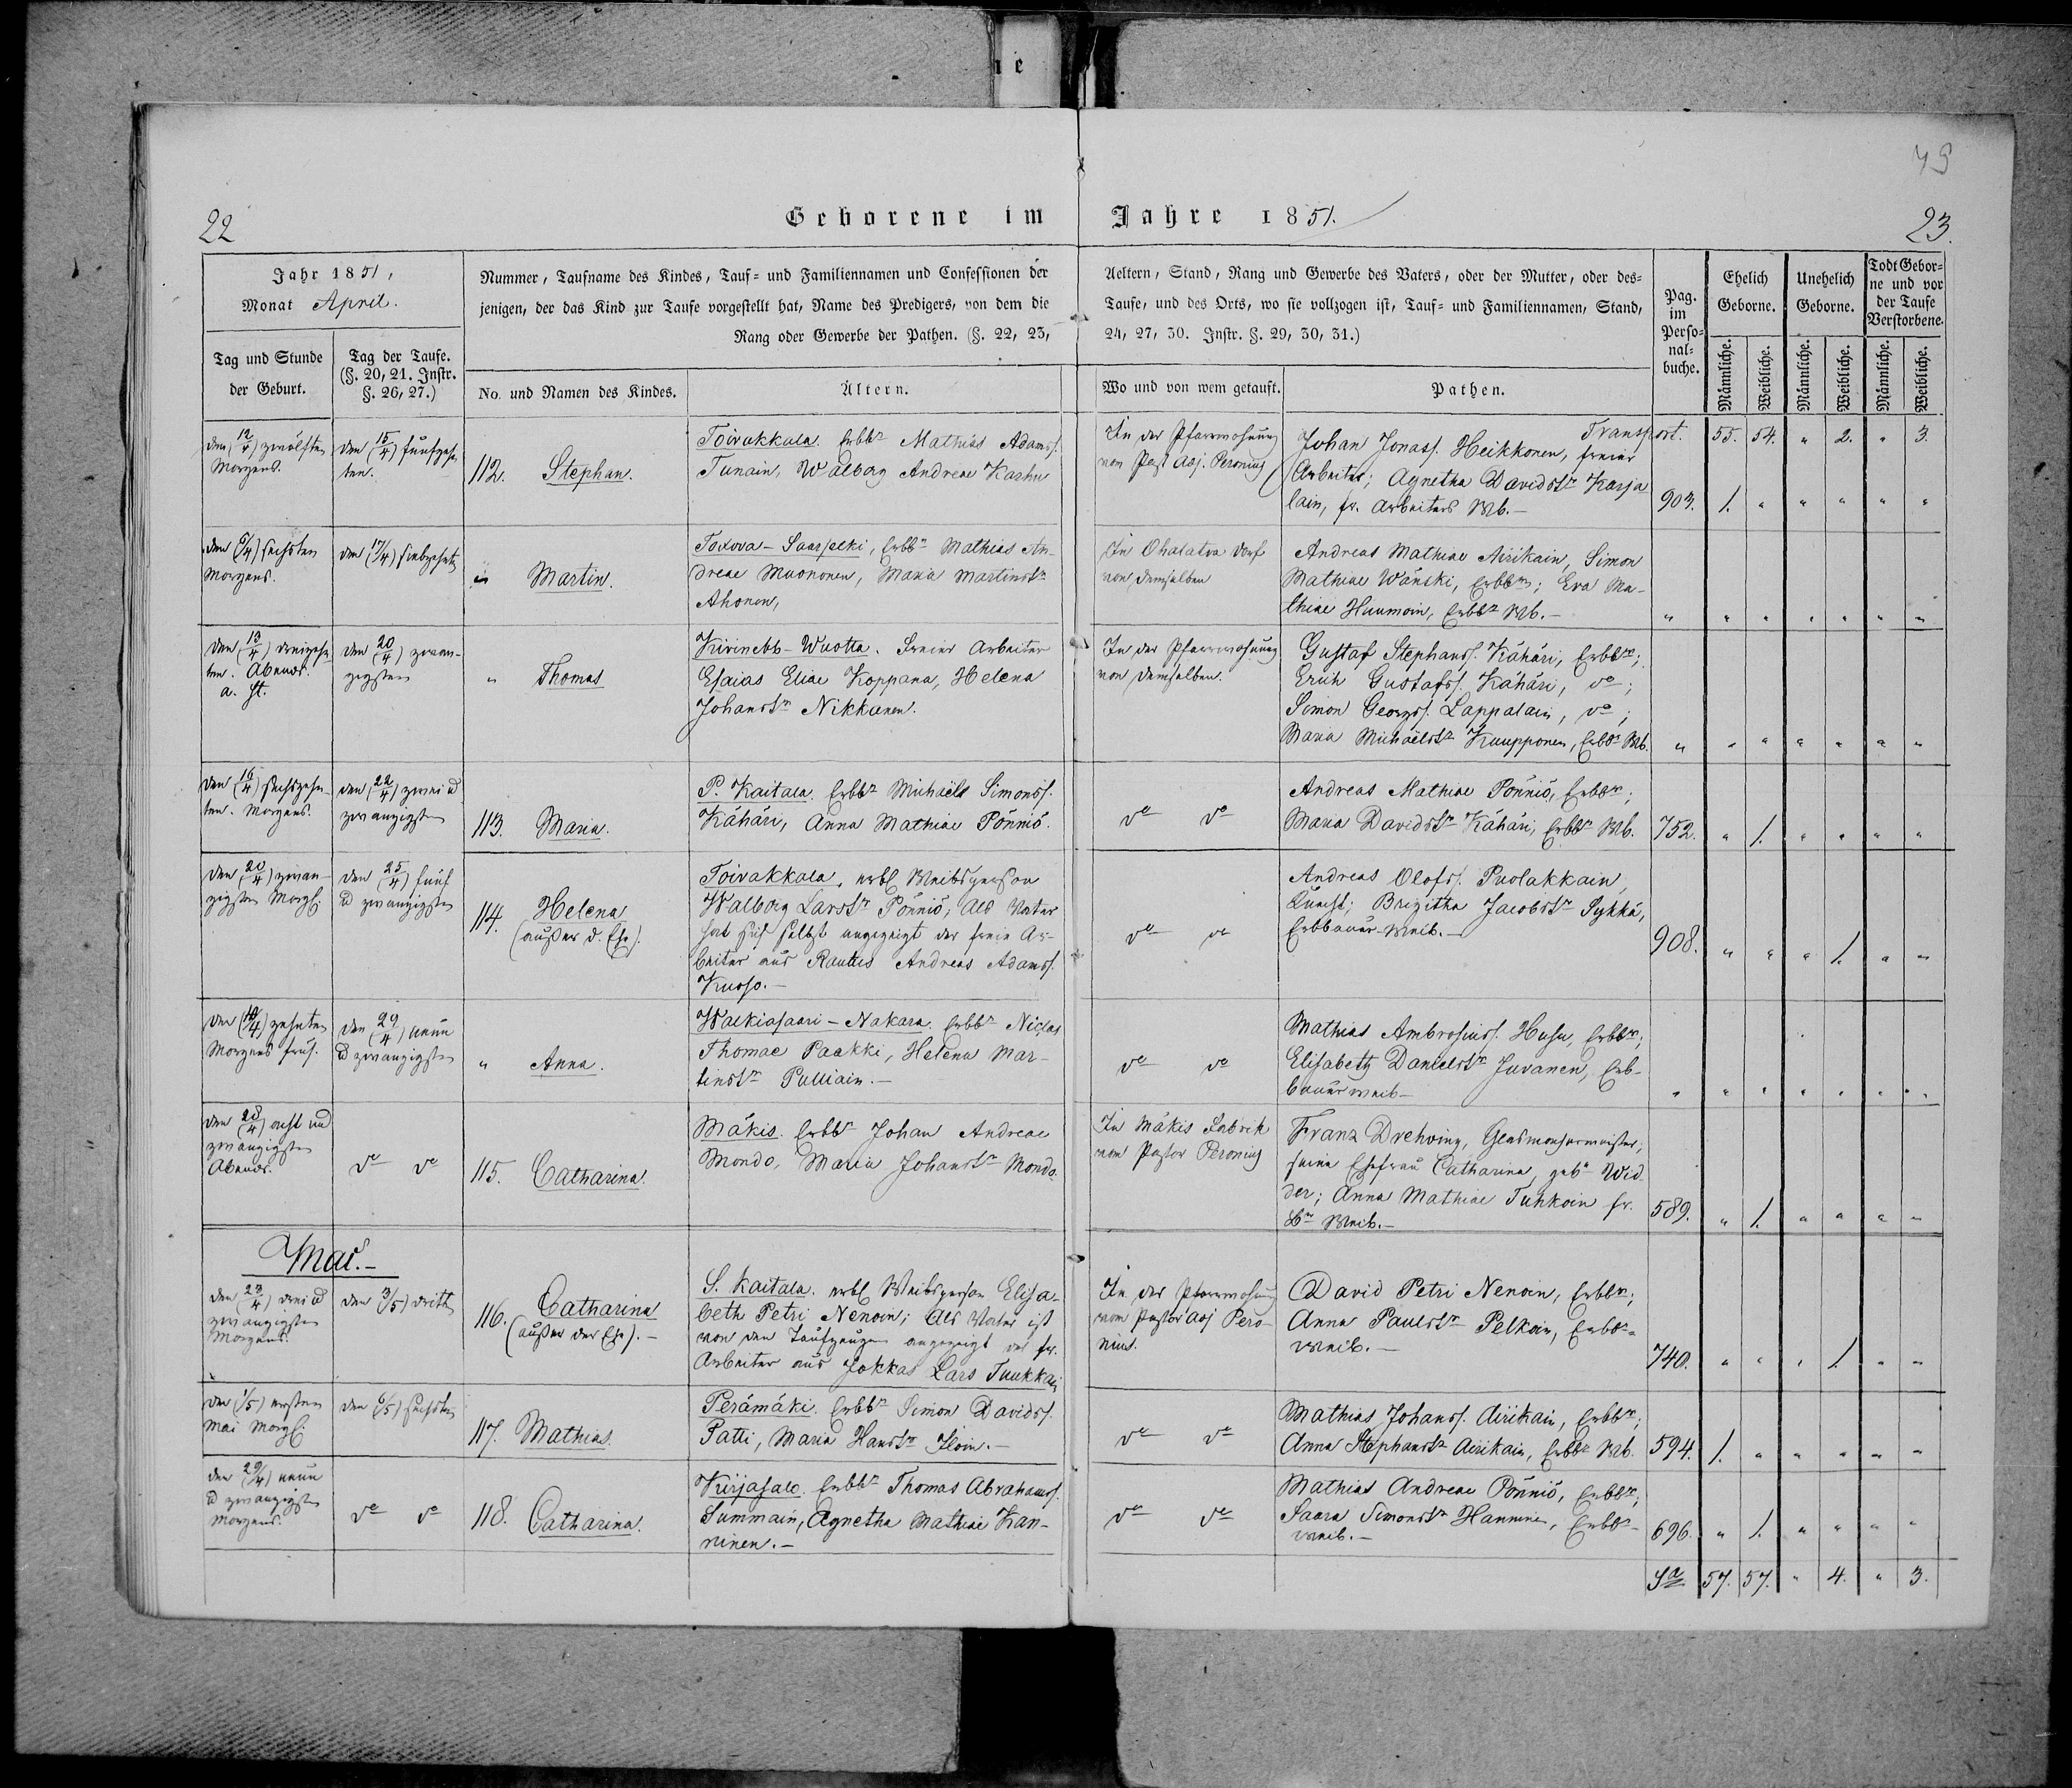 ne
75
Geborene im Jahre 1851.
22
23.
Jahr 1851,
Monat April.
Nummer, Taufname des Kindes, Tauf- und Familiennamen und Confessionen der
jenigen, der das Kind zur Taufe vorgestellt hat, Name des Predigers, von dem die
Rang oder Gewerbe der Pathen. (§. 22, 23,
Aeltern, Stand, Rang und Gewerbe des Vaters, oder der Mutter, oder des-
Taufe, und des Orts, wo sie vollzogen ist, Tauf- und Familiennamen, Stand,
24, 27, 30. Instr. §. 29, 30, 31.)
Pag.
im
Perso-
nal-
buche.
Ehelich
Geborne.
Unehelich
Geborne.
Todt Gebor-
ne und vor
der Taufe
Verstorbene.
Tag und Stunde
der Geburt.
Tag der Taufe.
(§. 20, 21. Instr.
§. 26, 27.)
No. und Namen des Kindes.
Ältern.
Wo und von wem getauft.
Pathen.
Männliche.
Weibliche.
Männliche.
Weibliche.
Männliche.
Weibliche.
Transport. 55. 54. " 2. " 3.
den (12/4) zwölften
Morgens.
den (15/4) fünfzehn
ten.
112. Stephan.
Toivakkala. Erbbr Mathias Adamss.
Tunain, Walborg Andreae Karhu
In der Pfarrwohnung
von Past. Adj. Peronius
Johan Jonass. Heikkonen, freier
Arbeiter; Agnetha Davidstr Karja
lain, fr. Arbeiters Wb.-
903. 1. " " " " "
den (6/4) sechsten
Morgens.
den (17/4) siebzehnt
" Martin.
Toxova-Saarselki, Erbbr Mathias An-
dreae Muononen, Maria Martinstr
Ahonen,
In Ohalatva Dorf
von demselben
Andreas Mathiae Airikain, Simon
Mathiae Wänski, Erbbrn; Eva Ma-
thiae Huumoin, Erbbr Wb.-
" " " " " " "
den (13/4) dreizehn
ten. Abends.
a. St.
den (20/4) zwan-
zigsten
" Thomas
Kirinebb-Wuotta. Freier Arbeiter
Esaias Eliae Koppana, Helena
Johanstr Nikkanen.
In der Pfarrwohnung
von demselben.
Gustaf Stephanss. Kähäri, Erbbr;
Erich Gustafs. Kähäri, do;
Simon Georgs. Lappalain, do;
Maria Michaelstr Kuupponen, Erbbr Wb.
" " " " " " "
den (16/4) sechszehn-
ten. Morgens.
den (22/4) zwei ud
zwanzigsten
113. Maria.
P. Kaitala. Erbbr Michaël Simonss.
Kähäri, Anna Mathiae Pönniö.
do do
Andreas Mathiae Pönniö, Erbbr;
Maria Davidstr Kähäri, Erbbr Wb.
752. " 1. " " " "
den (20/4) zwan-
zigsten Morgs.
den (25/4) fünf
ud zwanzigsten
114. Helena
(außer d. Ehe).
Toivakkala. erbl Weibsperson
Walborg Larstr Pönniö; Als Vater
hat sich selbst angezeigt der freie Ar-
beiter aus Rautus Andreas Adamss.
Kuoso.-
do do
Andreas Olofs. Puolakkain,
Knecht; Brigitha Jacobstr Sykkä,
Erbbauer-Weib.-
908. " " " 1. " "
den (10/4) zehnten
Morgens früh.
den (29/4) neun
ud zwanzigsten
" Anna.
Walkiasaari-Nakara. Erbbr Niclas
Thomae Paakki, Helena Mar-
tinstr Pulliain.-
do do
Mathias Ambrosiuss. Husu, Erbbr;
Elisabeth Danielstr Juvanen, Erb-
bauerweib-
" " " " " " "
den (28/4) acht und
zwanzigsten
Abends.
do do
115. Catharina.
Mäkis. Erbbr Johan Andreae
Mondo, Maria Johanstr Mondo
In Mäkis Fabrik
vom Pastor Peronius
Franz Drehving, Glasmachermeister,
seine Ehefrau Catharina, geb. Wid-
der; Anna Mathiae Tuhkoin fr.
Weib.-
589. " 1. " " " "
Mai.-
den (23/4) drei ud
zwanzigsten
Morgens.
den (3/5) dritten
116. Catharina
(außer der Ehe).-
S. Kaitala. erbl Weibsperson Elisa-
beth Petri Nenoin; Als Vater ist
von den Taufzeugen angezeigt der fr.
Arbeiter aus Jokkas Lars Tuukkain
In der Pfarrwohnung
vom Pastor Adj Pero-
nius.
David Petri Nenoin, Erbbr;
Anna Paulstr Pelkoin, Erbbr-
weib.-
740. " " " 1. " "
den (1/5) ersten
Mai Morgs.
den (6/5) sechsten
117. Mathias.
Perämäki. Erbbr Simon Davidss.
Patti, Maria Hanstr Iloin.-
do do
Mathias Johanss. Airikain, Erbbr;
Anna Stephanstr Airikain, Erbbr Wb.
594. 1. " " " " "
den (29/4) neun
ud zwanzigsten
Morgens.
do do
118. Catharina.
Kirjasalo. Erbbr Thomas Abrahamss.
Summain, Agnetha Mathiae Kan-
ninen.-
do do
Mathias Andreae Pönniö, Erbbr;
Saara Simonstr Hannine, Erbbr-
weib.-
696. " 1. " " " "
Sa 57. 57. " 4. " 3.